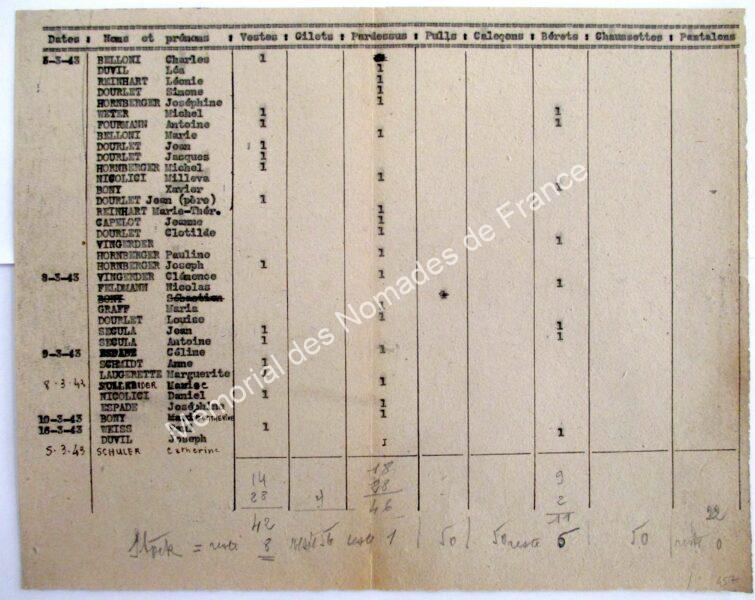 Dates : Noms et prénoms : Vestes : Gilets : Pardessus : Pulls : Caleçons : Bérets : Chaussettes : Pantalons
5-3-43 BELLONI Charles 1
DUVIL Léa 1
REINHART Léonie 1
DOURLET Simone 1
HORNBERGER Joséphine 1
WETER Michel 1 1
FOURMANN Antoine 1 1
BELLONI Marie 1
DOURLET Jean 1
DOURLET Jacques 1
HORNBERGER Michel 1
NICOLICI Milleva 1
BONY Xavier 1
DOURLET Jean (père) 1
REINHART Marie-Thér. 1
CAPELOT Jeanne 1
DOURLET Clotilde 1
VINGERDER 1
HORNBERGER Pauline 1
HORNBERGER Joseph 1
8-3-43 VINGERDER Clémence 1
FELDMANN Nicolas 1
BONY Sébastien
GRAFF Maria
DOURLET Louise 1
SEGULA Jean 1 1
SEGULA Antoine 1 1
9-3-43 ESPADE Céline 1
SCHMIDT Anne 1
LAUGERETTE Marguerite 1
8-3-43
NICOLICI Daniel 1
ESPADE Joséphine 1
10-3-43 BONY CATHERINE 1
16-3-43 WEISS 1
DUVIL Joseph 1
5-3-43 SCHULER Catherine 1
14 18 9
28 28 2
42 46 11 22
Stock = reste 8 reste 1 50 50 reste 5 50 reste 0
457
Mémorial des Nomades de France